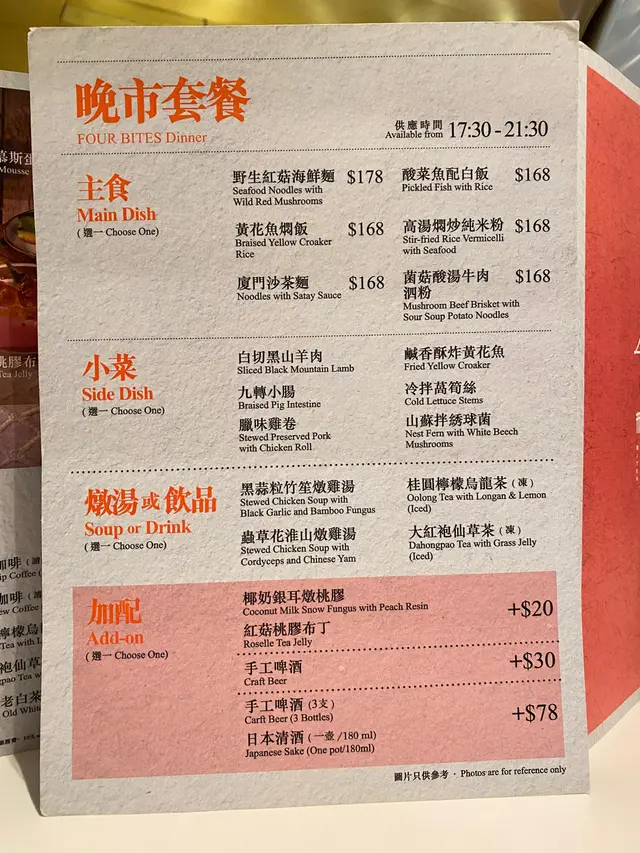 晚市套餐
FOUR BITES Dinner
供應時間
Available from 17:30 - 21:30
主食
Main Dish
( 選一 Choose One)
野生紅菇海鮮麵 $178
Seafood Noodles with
Wild Red Mushrooms
酸菜魚配白飯 $168
Pickled Fish with Rice
黃花魚燜飯 $168
Braised Yellow Croaker
Rice
高湯燜炒純米粉 $168
Stir-fried Rice Vermicelli
with Seafood
廈門沙茶麵 $168
Noodles with Satay Sauce
菌菇酸湯牛肉 $168
泗粉
Mushroom Beef Brisket with
Sour Soup Potato Noodles
小菜
Side Dish
( 選一 Choose One)
白切黑山羊肉
Sliced Black Mountain Lamb
鹹香酥炸黃花魚
Fried Yellow Croaker
九轉小腸
Braised Pig Intestine
冷拌萵筍絲
Cold Lettuce Stems
臘味雞卷
Stewed Preserved Pork
with Chicken Roll
山蘇拌綉球菌
Nest Fern with White Beech
Mushrooms
燉湯或飲品
Soup or Drink
( 選一 Choose One)
黑蒜粒竹笙燉雞湯
Stewed Chicken Soup with
Black Garlic and Bamboo Fungus
桂圓檸檬烏龍茶 ( 凍 )
Oolong Tea with Longan & Lemon
(Iced)
蟲草花淮山燉雞湯
Stewed Chicken Soup with
Cordyceps and Chinese Yam
大紅袍仙草茶 ( 凍 )
Dahongpao Tea with Grass Jelly
(Iced)
加配
Add-on
( 選一 Choose One)
椰奶銀耳燉桃膠
Coconut Milk Snow Fungus with Peach Resin
+$20
紅菇桃膠布丁
Roselle Tea Jelly
手工啤酒 +$30
Craft Beer
手工啤酒 (3支)
Carft Beer (3 Bottles)
+$78
日本清酒 ( 一壺 /180 ml)
Japanese Sake (One pot/180ml)
圖片只供參考 · Photos are for reference only
慕斯蛋
Mousse
桃膠布
Tea Jelly
咖啡
咖啡
檸檬烏
袍仙草
老白茶
Old White